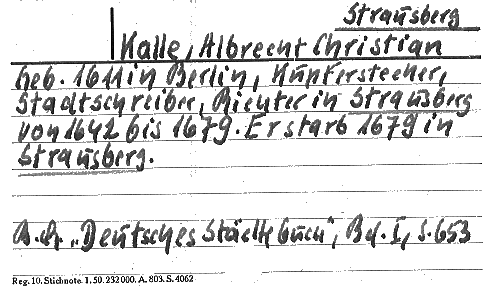 Strausberg
Kalle, Albrecht Christian
Geb. 1611 in Berlin, Kupferstecher,
Stadtschreiber, Richter in Strausberg
von 1642 bis 1679. Er starb 1679 in
Strausberg.
"Deutsches Städtebuch", Bd. I, S. 653
Reg. 10. Stichnote. 1. 50. 232000. A. 803. S. 4062